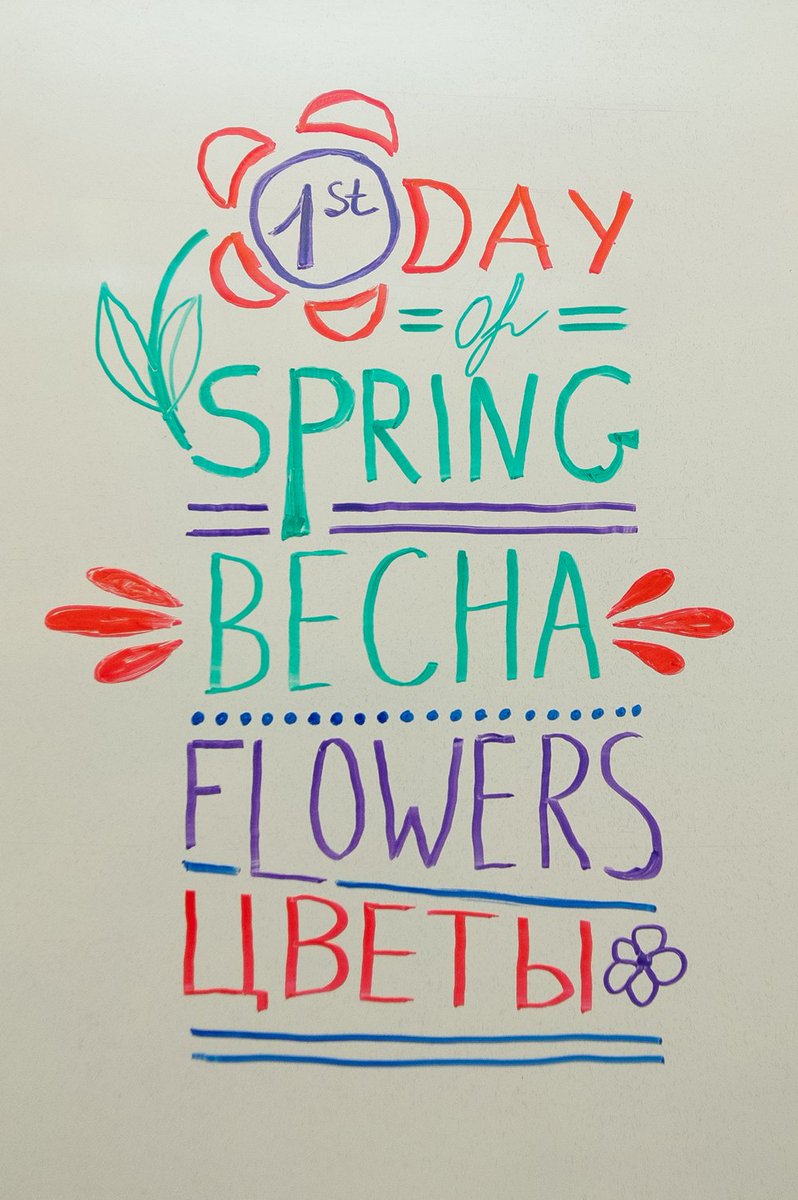 1st DAY
of
SPRING
ВЕСНА
FLOWERS
ЦВЕТЫ